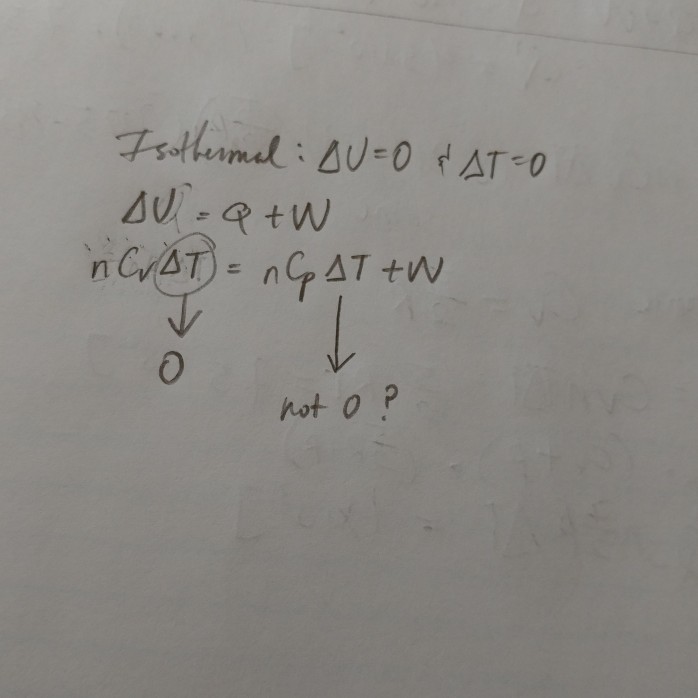 Isothermal: ΔU=0 & ΔT=0
ΔU = Q + W
nCvΔT = nCpΔT + W
0
not 0 ?